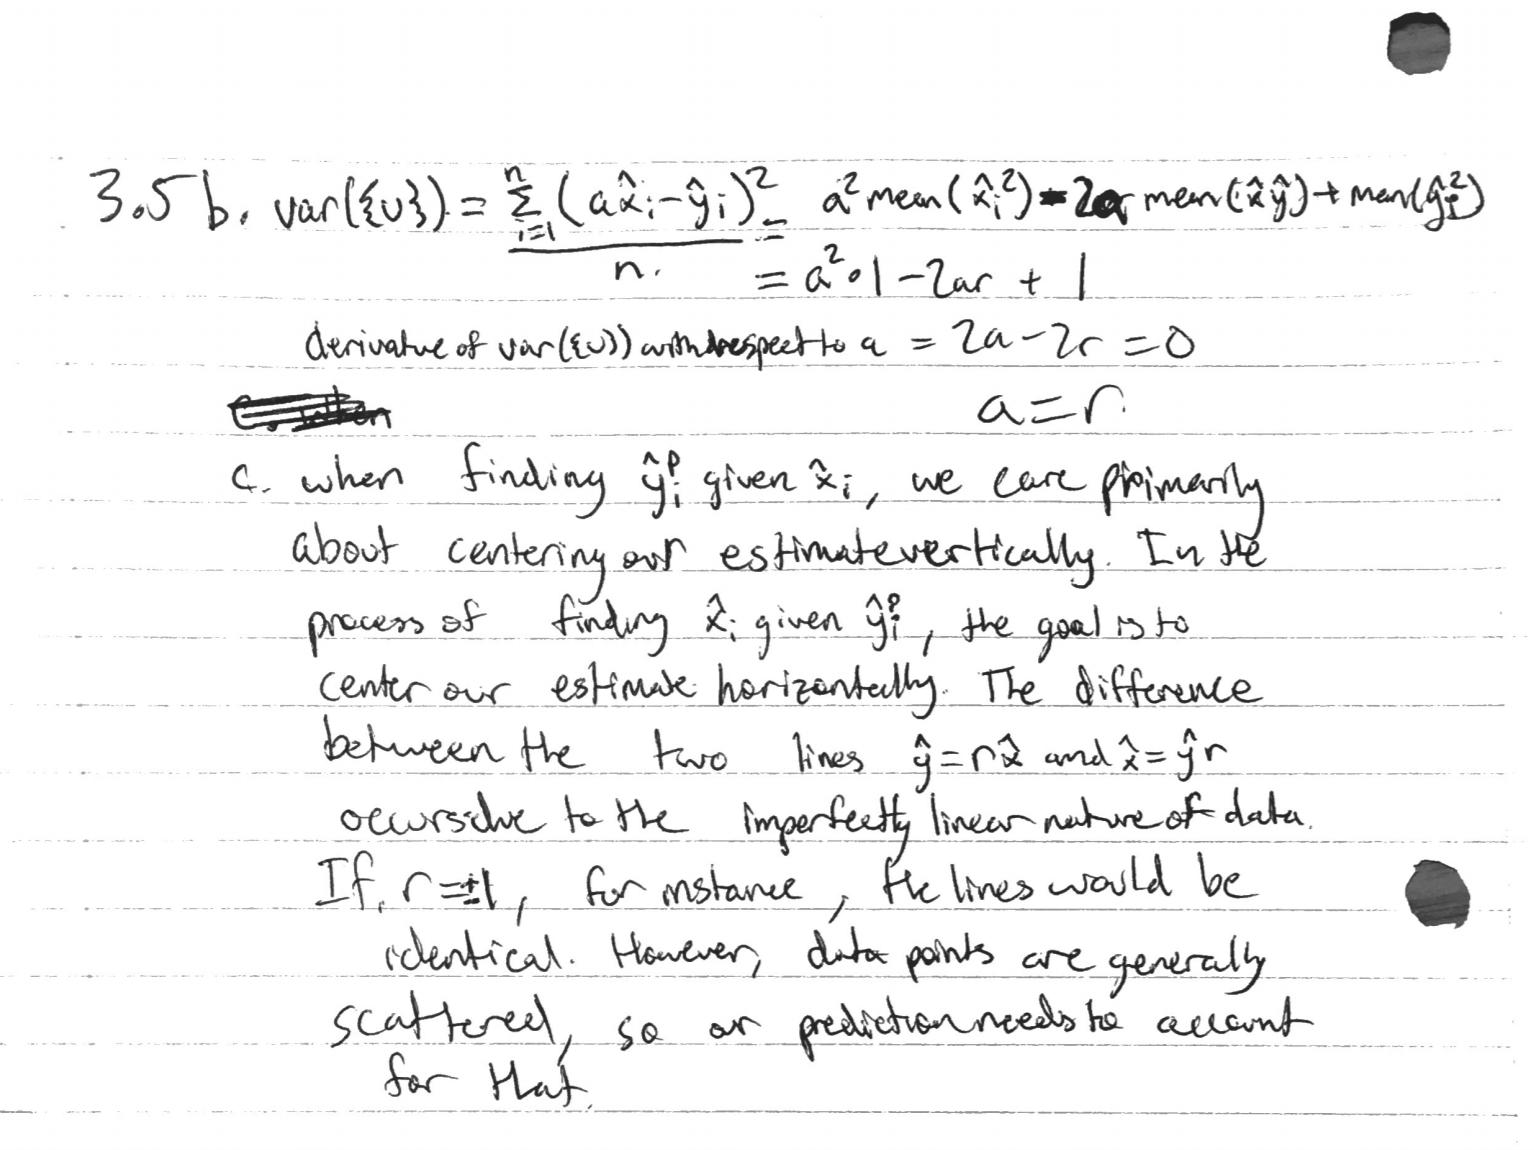 3.5 b. var({u}) = Σ_{i=1}^{n} (ax̂ᵢ - ŷᵢ)² / n. = a² mean(x̂ᵢ²) - 2a mean(x̂ŷ) + mean(ŷᵢ²)
= a²·1 - 2ar + 1
derivative of var({u}) with respect to a = 2a - 2r = 0
a = r
c. when finding ŷᵢᵖ given x̂ᵢ, we care primarily
about centering our estimate vertically. In the
process of finding x̂ᵢ given ŷᵢᵖ, the goal is to
center our estimate horizontally. The difference
between the two lines ŷ = rx̂ and x̂ = ŷr
occurs due to the imperfectly linear nature of data.
If r = ±1, for instance, the lines would be
identical. However, data points are generally
scattered, so our prediction needs to account
for that.